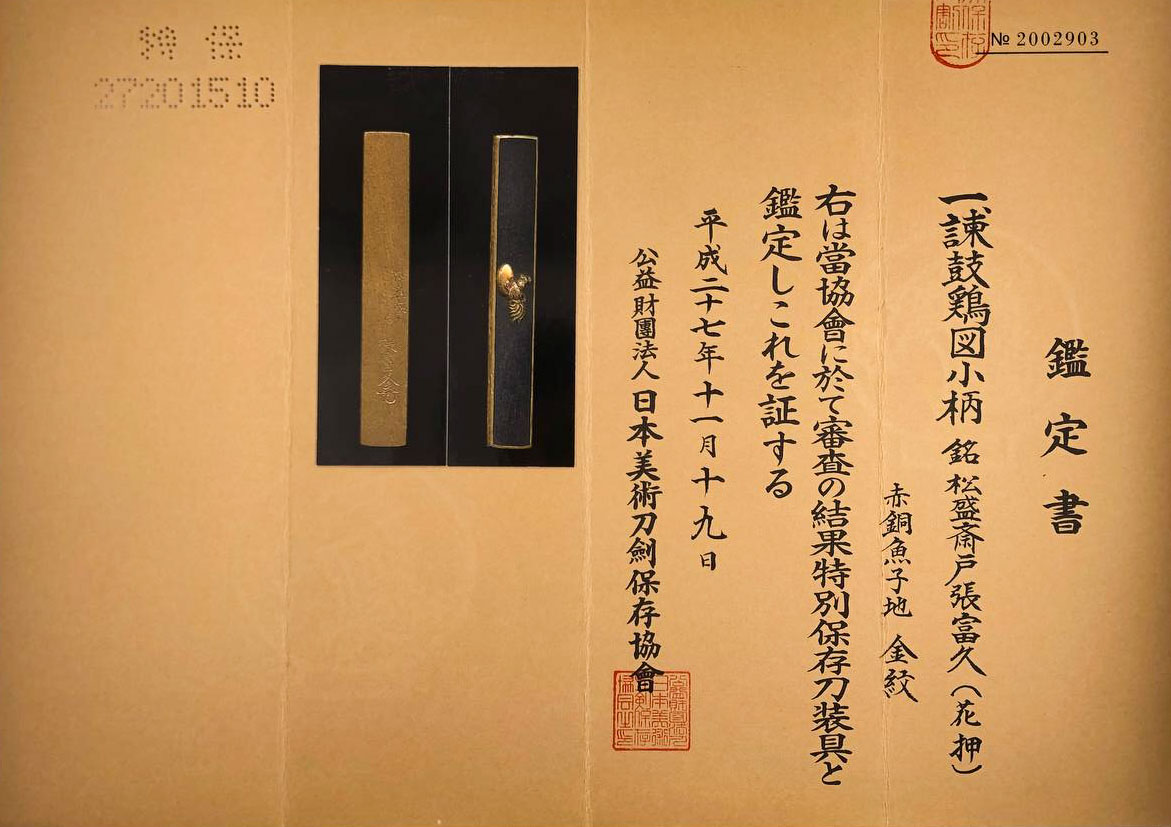 № 2002903
鑑定書
一、諌鼓鶏図小柄 銘 松盛斎戸張富久(花押)
赤銅魚子地 金紋
右は當協會に於て審査の結果特別保存刀装具と
鑑定しこれを証する
平成二十七年十一月十九日
公益財團法人 日本美術刀劍保存協會
27201510